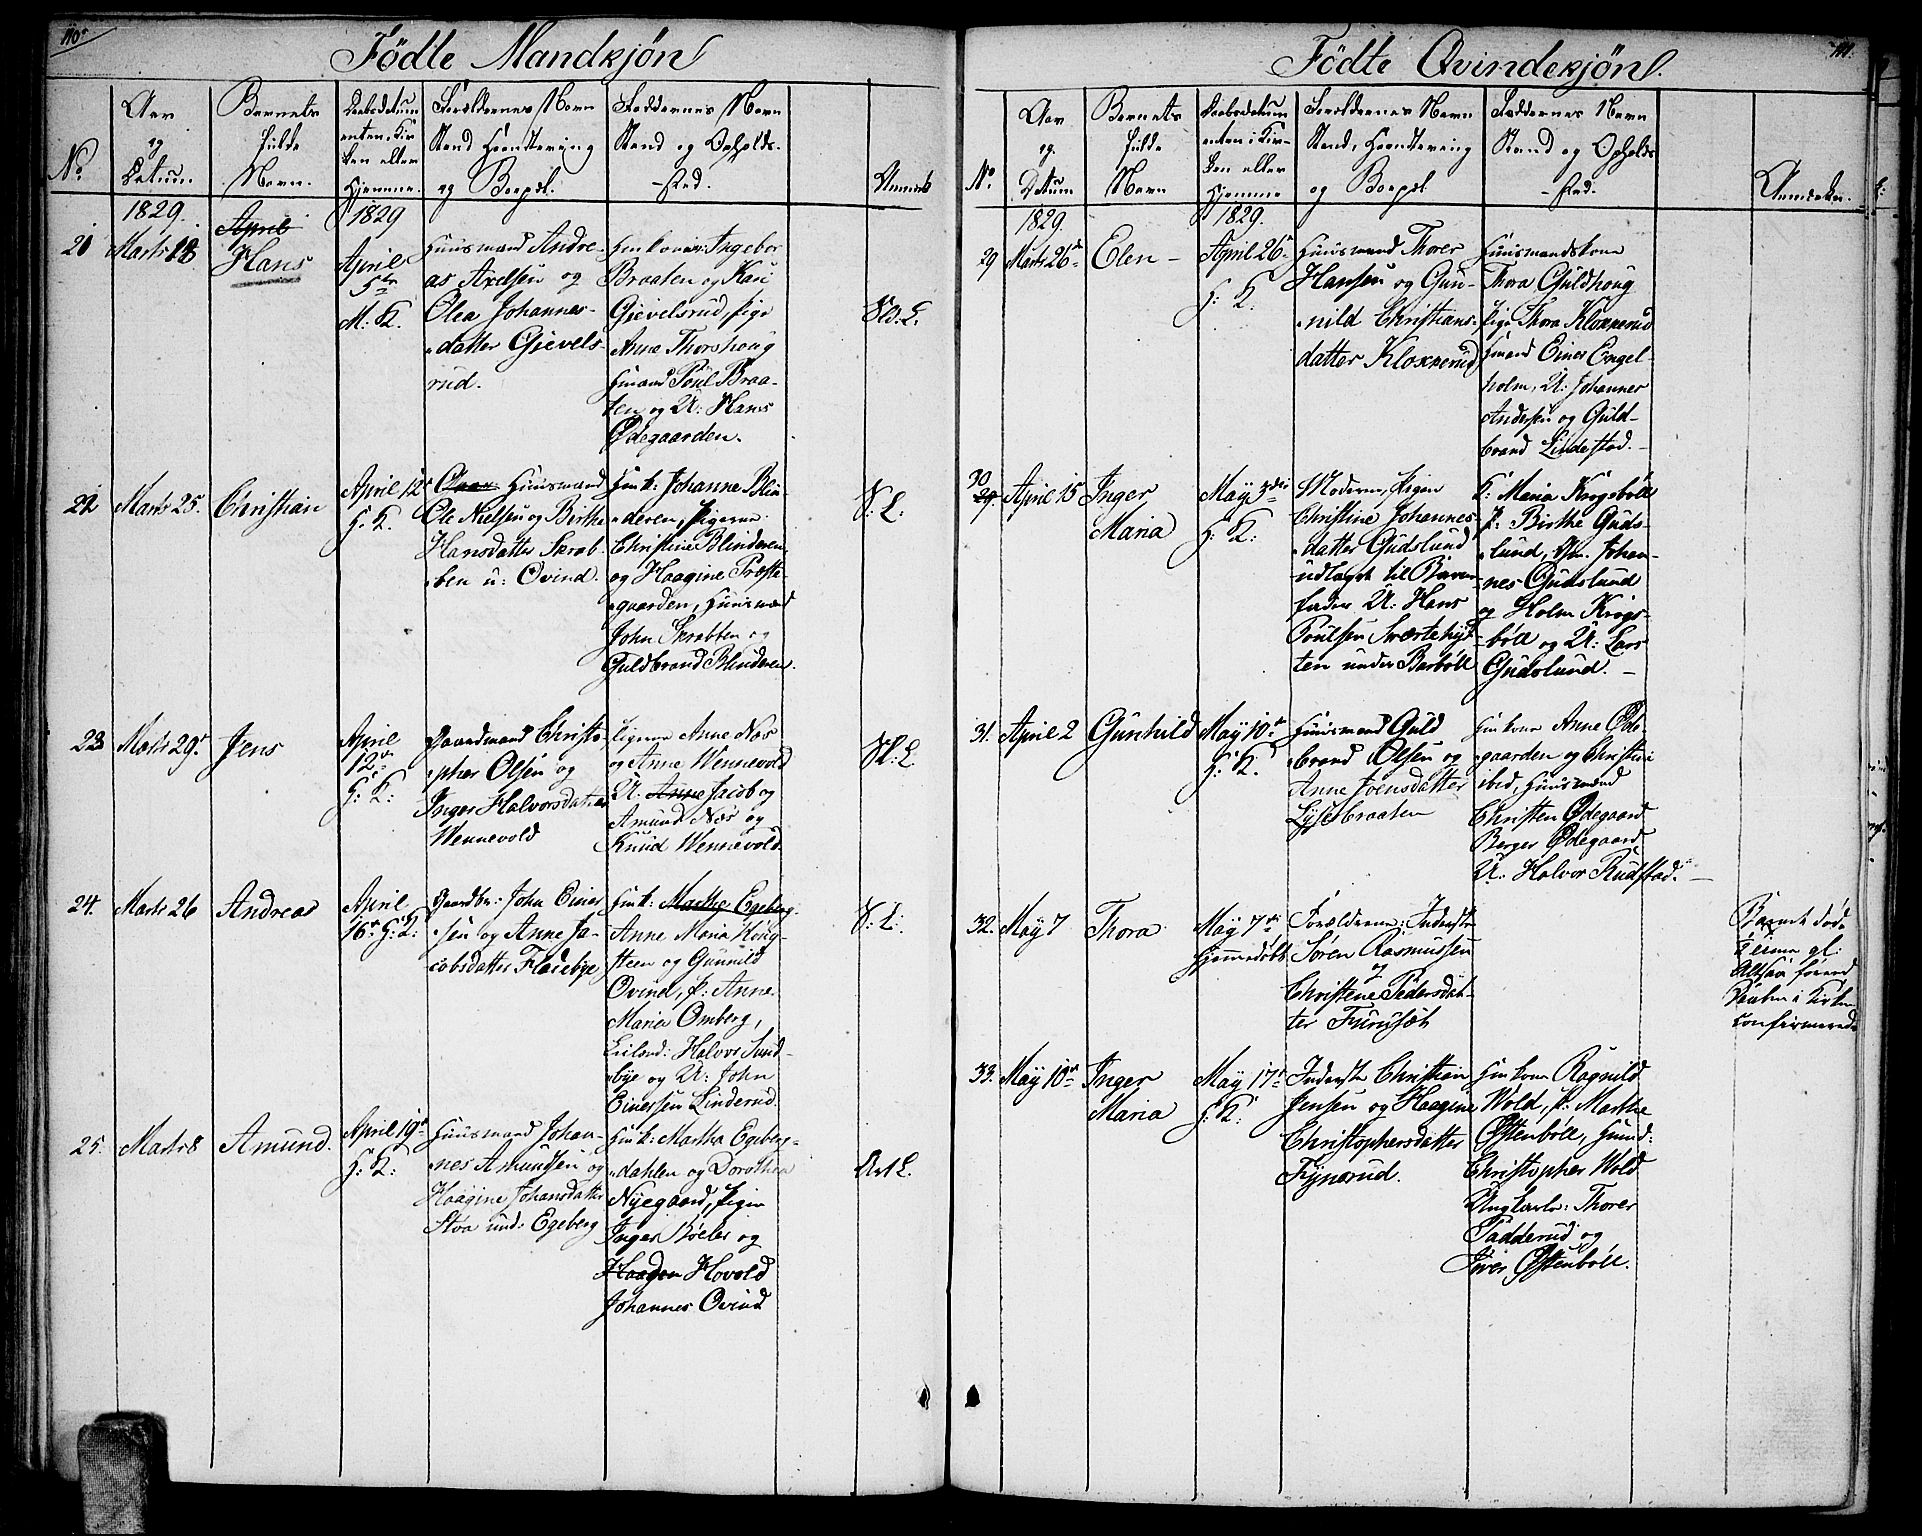 110.
Födte Mandkjøn
No.
Aar
og
Datum.
Barnets
fulde
Navn.
Daabsdatum
enten i Kir-
ken eller
Hjemme.
Forældrenes Navn
Stand Haandtering
og Boepæl.
Faddernes Navn
Stand og Opholds-
-sted.
Anmærk
1829.
1829
21
Marts 18.
April
Hans
April
5te
M: K.
Huusmand Andre-
as Axelsen og
Olea Johannes-
datter Gievels-
rud.
Ingebor
Braaten og Kari
Gievelsrud, Pige
Anne Thorshoug
Huusmand Poul Braa-
ten og U: Hans
Ødegaarden.
22
Marts 25.
Christian
April 12
H: K.
Huusmand
Ole Nielsen og Birthe
Hansdatter Skrab-
ben u: Ovind.
Hmk: Johanne Blin-
deren, Pigerne
Christine Blinderen
og Haagine Præste-
gaarden, Huusmænd
John Skrabben og
Guldbrand Blinderen.
23
Marts 29
Jens
April
12
H: K:
Gaardmand Christo-
pher Olsen og
Inger Halvorsdatter
Wennevold
Pigerne Anne Næs
og Anne Wennevold
U: Anne Jacob og
Amund Næs og
Knud Wennevold.
24.
Marts 26
Andreas
April
16 H: K:
Gaardbr: John Einer
sen og Anne Ja-
cobsdatter Fladebye
Hmk: Marthe Egeberg
Anne Maria Kong-
steen og Gunnild
Ovind, P: Anne
Maria Omberg,
Halvor Sund-
bye og U: John
Einersen Linderud.
25.
Marts 8
Amund.
April 19
H: K:
Huusmand Johan-
nes Amundsen og
Haagine Johansdatter
Stoa und: Egeberg
Hmk: Martha Egeberg-
dahlen og Dorothea
Nyegaard, Pigen
Inger Bøeler og
Haagen Hovold
Johannes Ovind
111.
Födte Qvindekjøn.
No.
Aar
og
Datum
Barnets
fulde
Navn
Daabsdatum
enten i Kir-
ken eller
Hjemme
Forældrenes Navn
Stand, Haandtering
og Boepæl
Faddernes Navn
Stand og Opholds
-sted.
Anmærkn.
1829.
1829.
29
Marts 26
Elen -
April 26
H: K:
Huusmand Thorer
Hansen og Gun-
nild Christians-
datter Kloxrerud
Huusmandskone
Thora Guldhoug
Pige Thora Kloxrerud
Einer Engel-
holm, U: Johannes
Andersen og Guld-
brand Lindestad. -
30
29.
April 15
Inger
Maria
May 3die
H: K:
Moderen, Pigen
Christine Johannes-
datter Gudslund
udlagt til Barne-
fader U: Hans
Poulsen Sværtehyt-
ten under Barböll
K: Maria Krogsböll
P: Birthe Guds-
lund, Johan-
nes Gudslund
og Holm Krogs-
böll og U: Lars
Gudslund. -
31.
April 2
Gunhild
May 10
H: K.
Huusmand Guld
brand Olsen og
Anne Joensdatter
Lysebraaten
Anne Øde-
gaarden og Christine
ibid, Huusmænd
Christen Ødegaard
Berger Ødegaard
U: Halvor Rudstad. -
32.
May 7
Thora
May 7
Hjemmedøbt
Forældrene: Inderste
Søren Rasmussen
og
Christene Pedersdat-
ter Furuset
Barnet døde
33.
May 10
Inger
Maria
May 17
H: K:
Inderste Christen
Jensen og Haagine
Christophersdatter
Fynsrud.
Ragnild
Wold, P: Marthe
Østenböll,
Christopher Wold
Ungkarle: Thorer
Tadderud og
Iver Østenböll.